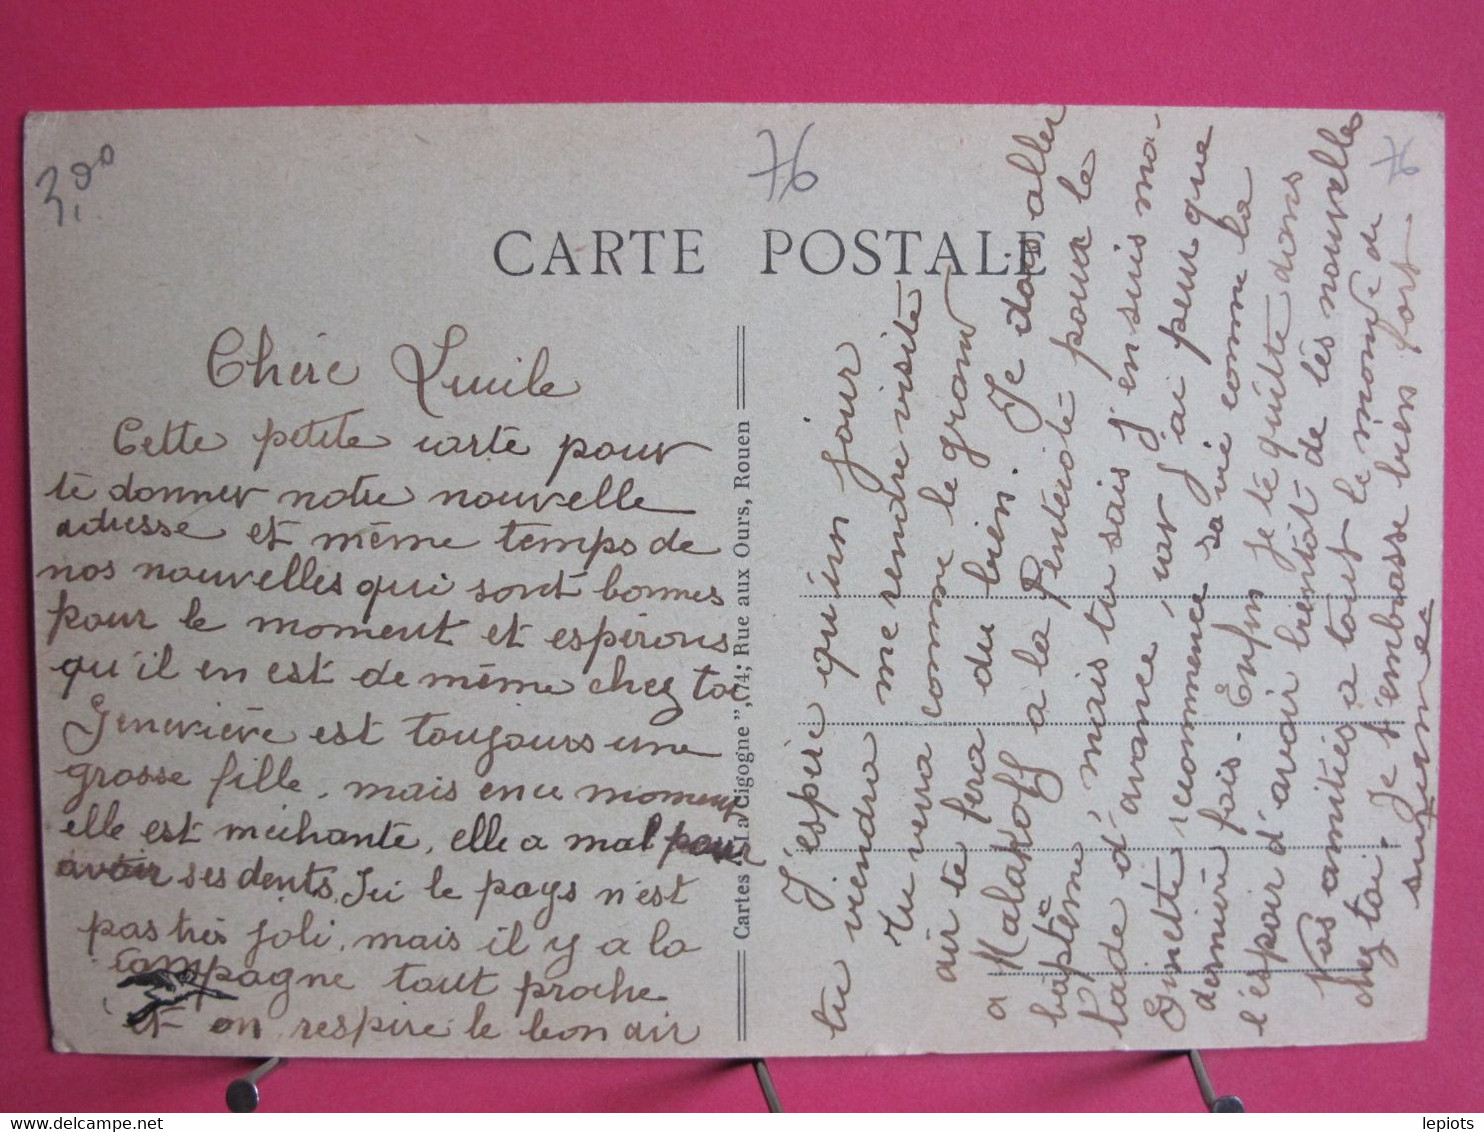 3,00
76
76
CARTE POSTALE
Chère Lucile
Cette petite carte pour
te donner notre nouvelle
adresse et même temps de
nos nouvelles qui sont bonnes
pour le moment et espérons
qu'il en est de même chez toi
Geneviève est toujours une
grosse fille, mais en ce moment
elle est méchante, elle a mal pour
avoir ses dents. Ici le pays n'est
pas très joli, mais il y a la
campagne tout proche
et on respire le bon air
Cartes "La Cigogne", 74, Rue aux Ours, Rouen
J'espère qu'un jour
tu viendra me rendre visite
tu verra comme le grand
air te fera du bien. Je dois aller
a Malakoff a la Pentecôte pour le
baptême, mais tu sais j'en suis ma-
lade d'avance, car j'ai peur que
Ginette recommence sa vie comme la
dernière fois. Enfin je te quitte dans
l'espoir d'avoir bientôt de tes nouvelles
Nos amitiés a tout le monde de
chez toi. Je t'embrasse bien fort
Suzanne
lepiots